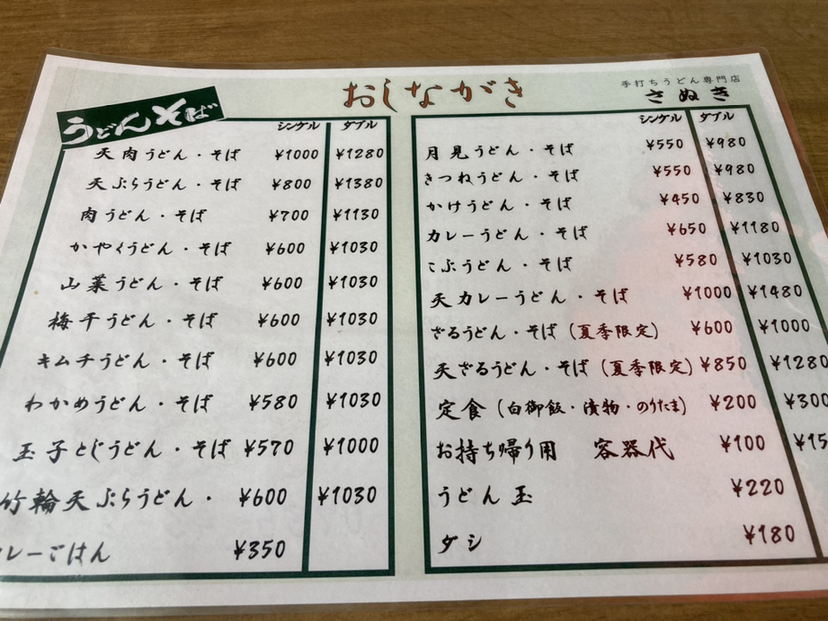 おしながき
手打ちうどん専門店
さぬき
うどんそば
シングル ダブル
天肉うどん・そば ¥1000 ¥1280
天ぷらうどん・そば ¥800 ¥1380
肉うどん・そば ¥700 ¥1130
かやくうどん・そば ¥600 ¥1030
山菜うどん・そば ¥600 ¥1030
梅干うどん・そば ¥600 ¥1030
キムチうどん・そば ¥600 ¥1030
わかめうどん・そば ¥580 ¥1030
玉子とじうどん・そば ¥570 ¥1000
竹輪天ぷらうどん・ ¥600 ¥1030
レーごはん ¥350
シングル ダブル
月見うどん・そば ¥550 ¥980
きつねうどん・そば ¥550 ¥980
かけうどん・そば ¥450 ¥830
カレーうどん・そば ¥650 ¥1180
こぶうどん・そば ¥580 ¥1030
天カレーうどん・そば ¥1000 ¥1480
ざるうどん・そば(夏季限定) ¥600 ¥1000
天ざるうどん・そば(夏季限定) ¥850 ¥1280
定食(白御飯・漬物・のりたま) ¥200 ¥300
お持ち帰り用 容器代 ¥100 ¥15
うどん玉 ¥220
ダシ ¥180